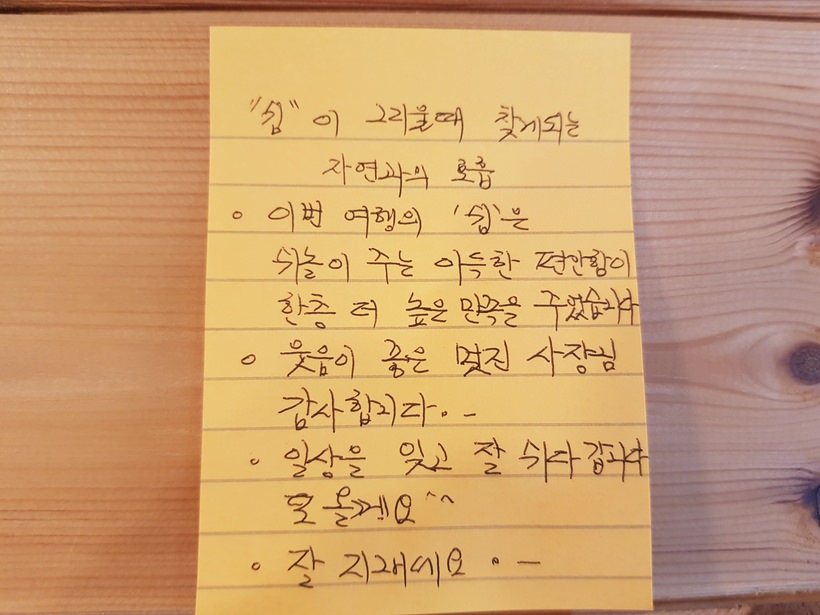 "쉼" 이 그리울때 찾게되는
자연과의 호흡
이번 여행의 '쉼'은
쉬놀이 주는 아득한 편안함이
한층 더 높은 만족을 주었습니다
웃음이 좋은 멋진 사장님
감사합니다.-
일상을 잊고 잘 쉬다 갑니다
또 올게요^^
잘 지내세요.-